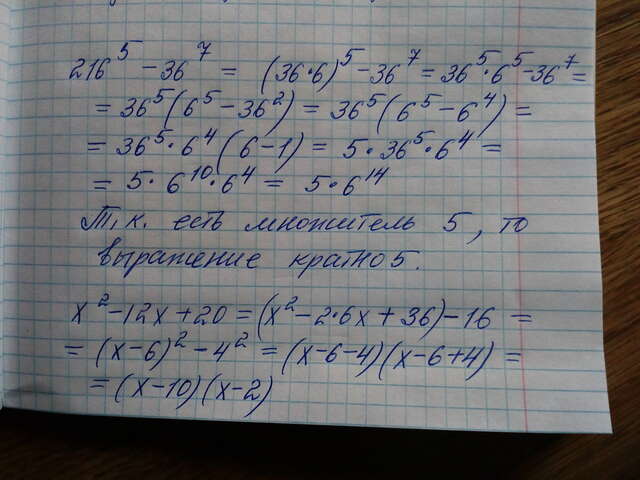 216⁵ - 36⁷ = (36·6)⁵ - 36⁷ = 36⁵·6⁵ - 36⁷ =
= 36⁵(6⁵ - 36²) = 36⁵(6⁵ - 6⁴) =
= 36⁵·6⁴(6-1) = 5·36⁵·6⁴ =
= 5·6¹⁰·6⁴ = 5·6¹⁴
Т.к. есть множитель 5, то
выражение кратно 5.
x² - 12x + 20 = (x² - 2·6x + 36) - 16 =
= (x-6)² - 4² = (x-6-4)(x-6+4) =
= (x-10)(x-2)